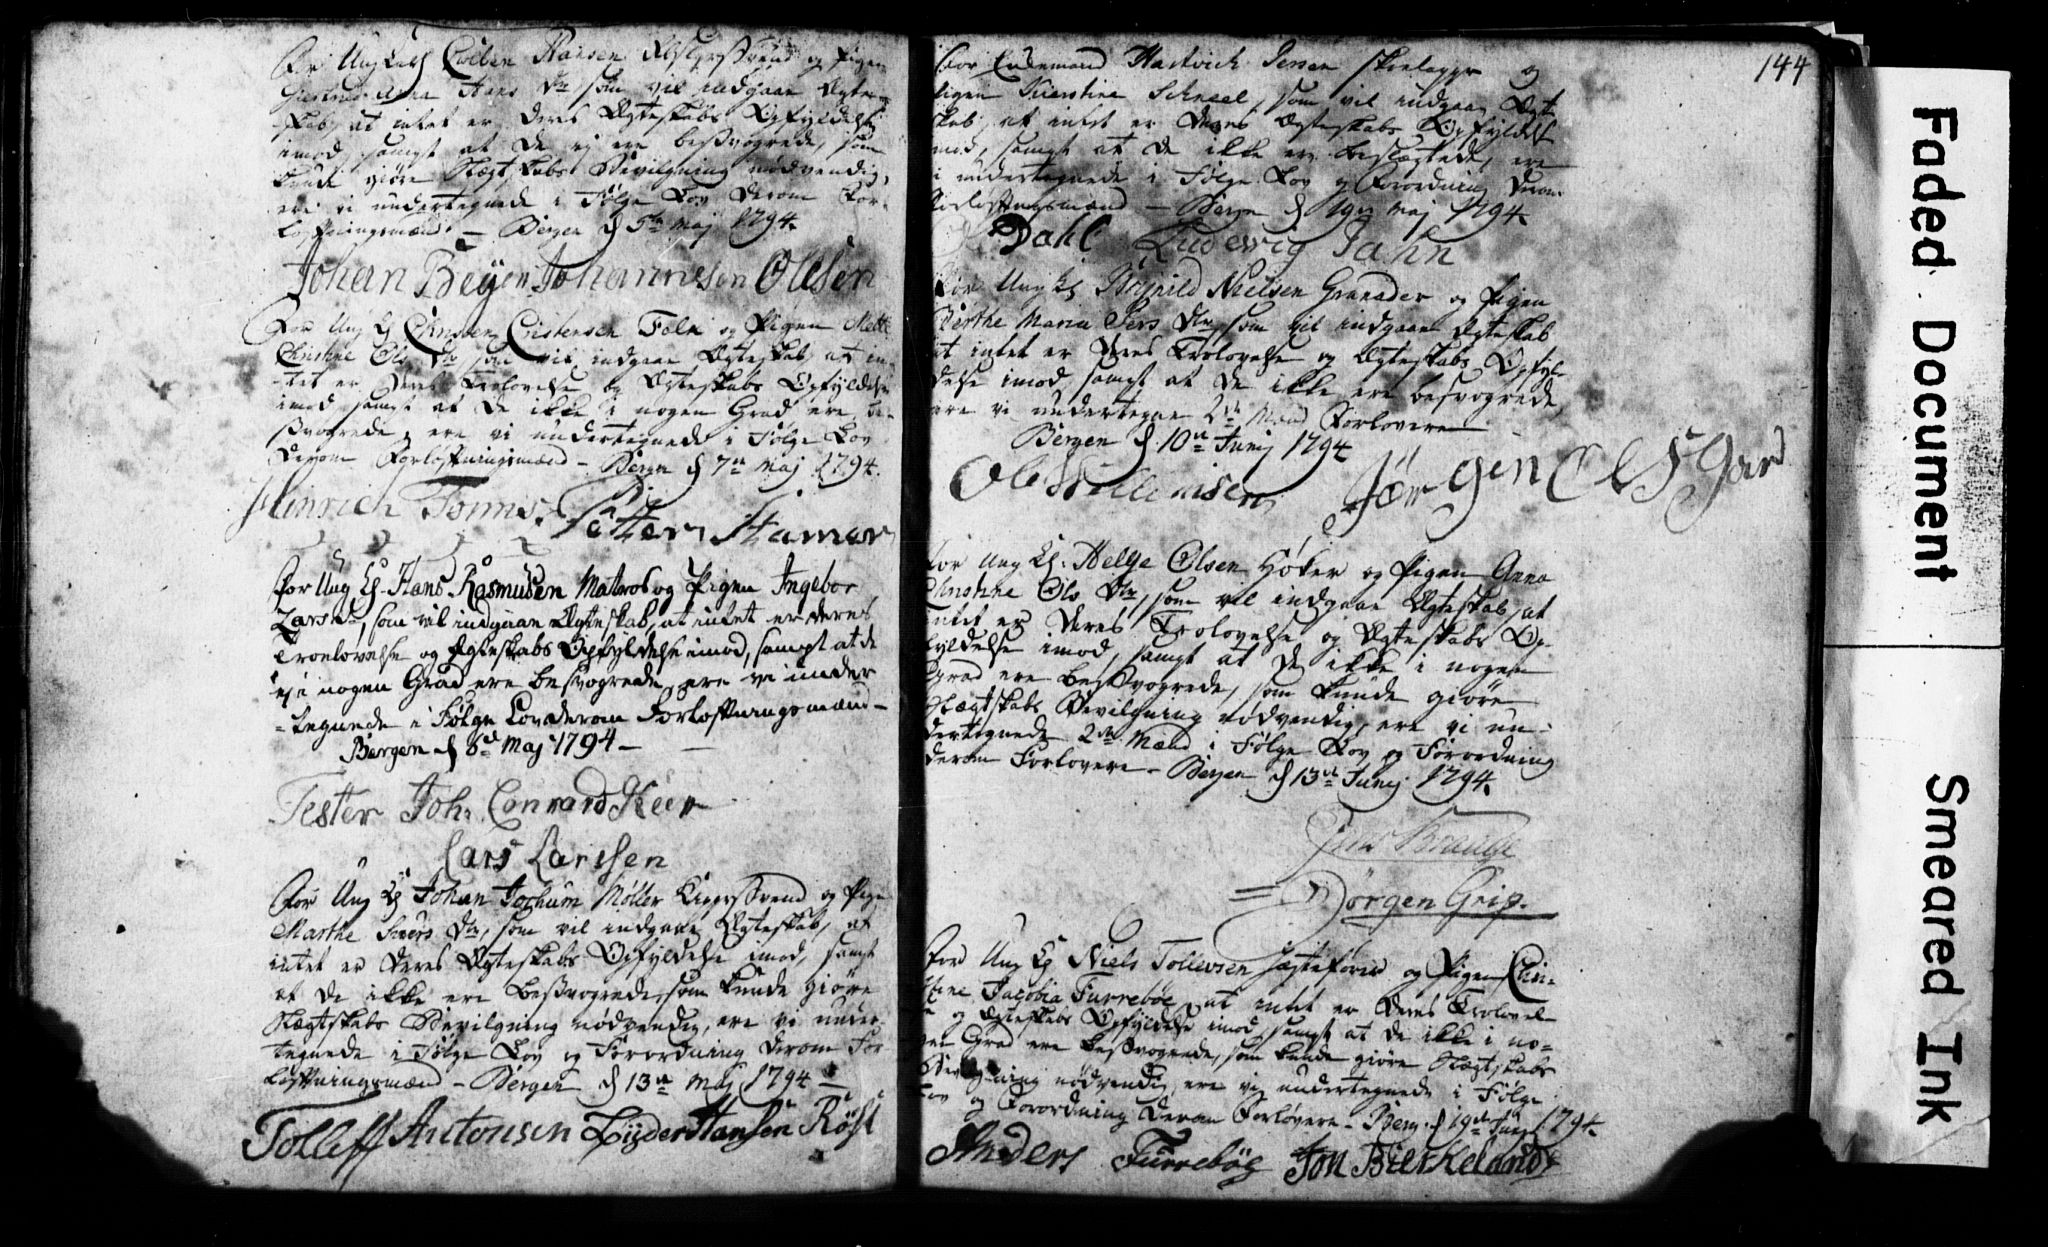 For Ung Karl Colben Hansen og Pigen
Anna Hans Dtr som vil indgaae Ægte-
skab, at intet er deres Ægteskabs Opfyldelse
imod, sampt at de ej ere besvogrede, som
kunde giøre Slægtskabs Bevilgning nødvendig,
ere vi undertegnede i Følge Lov derom For-
løftningsmænd - Bergen d 5te Maj 1794.
Johan Beÿer Johannes Ollsen
For Ung K Christen Cristensen Falk og Pigen Mette
Christine Ols Dtr som vil indgaae Ægteskab, at in-
-tet er deres Trolovelse og Ægteskabs Opfyldelse
imod, sampt at de ikke i nogen Grad ere be-
svogrede, ere vi undertegnede i Følge Lov
derom Forløftningsmænd - Bergen d 7de Maj 1794.
Hinrich Tonnis. Petter Hamer
For Ung K. Hans Rasmusen Matros og Pigen Ingebor
Lars Dtr, som vil indgaae Ægteskab, at intet er deres
Troelovelse og Ægteskabs Opfyldelse imod, sampt at de
ej i nogen Grad ere besvogrede, ere vi under
-tegnede i Følge Lov derom Forløftningsmænd-
Bergen d 8de Maj 1794-
Tester Joh. Conrard Keer
Lars Larssen
For Ung K Johan Jochum Møller og Pige
Marthe Dtr, som vil indgaae Ægteskab, at
intet er deres Ægteskabs Opfyldelse imod, sampt
at de ikke ere besvogrede, som kunde giøre
Slægtskabs Bevilgning nødvendig, ere vi under-
tegnede i Følge Lov og Forordning derom For
løftningsmænd - Bergen d 13de Maj 1794-
Tolleff Antonsen Lÿder Hansen Røst
144
For Enkemand Hartvich Jersen og
Pigen Kierstine Schneel, som vil indgaae Ægte
skab, at intet er deres Ægteskabs Opfyldelse
imod, sampt at de ikke ere beslægtede, ere
vi undertegnede i Følge Lov og Forordning derom
Forløftningsmænd - Bergen d 19de Maj 1794.
Dahl Ludewig Jahn
For Ung K Nielsen Granader og Pigen
Berthe Maria Pers Dtr, som vil indgaae Ægteskab
at intet er deres Trolovelse og Ægteskabs Opfyl-
delse imod, sampt at de ikke ere besvogrede,
ere vi undertegne 2de Mænd Forlovere
Bergen d 10de Junij 1794
Ole Willemsen Jørgen Elsgaard
For Ung K. Helge Olsen Høker og Pigen Anna
Christine Ols Dtr, som vil indgaae Ægteskab, at
intet er deres Trolovelse og Ægteskabs Op-
fyldelse imod, sampt at de ikke i nogen
Grad ere besvogrede, som kunde giøre
Slægtskabs Bevilgning nødvendig, ere vi un-
dertegnede 2de Mænd i Følge Lov og Forordning
derom Forlovere - Bergen d 13de Junij 1794.
Jens
Børgen Grip.
For Ung K Niels Tollevsen og Pigen Chri-
stine Jacobia Furrebøe at intet er deres Trolovel-
se og Ægteskabs Opfyldelse imod, sampt at de ikke i no-
gen Grad ere besvogrede, som kunde giøre Slægtskabs
Bevilgning nødvendig, ere vi undertegnede i Følge
Lov og Forordning derom Forlovere - Berg. d 19de Junij 1794.
Anders Furrebøe Jon Bierkeland
Faded Document
Smeared Ink